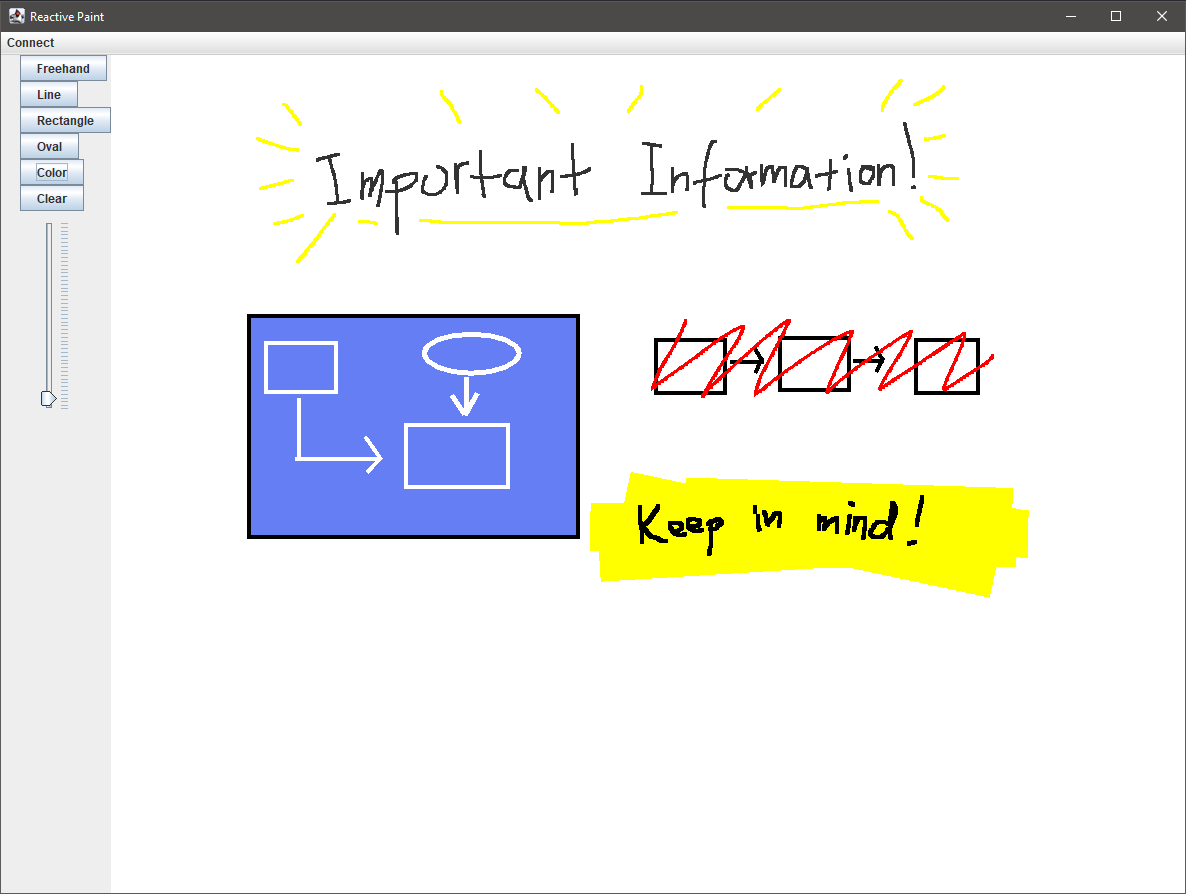 Reactive Paint
Connect
Freehand
Line
Rectangle
Oval
Color
Clear
Important Information!
Keep in mind!